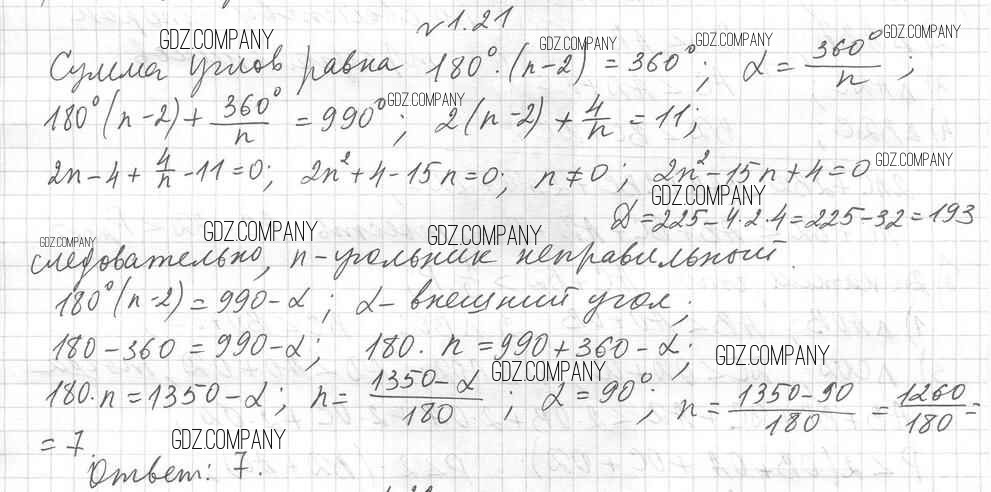 №1.21
GDZ.COMPANY
Сумма углов равна 180°·(n-2) = 360°; α = 360°/n ;
GDZ.COMPANY GDZ.COMPANY GDZ.COMPANY
180°(n-2) + 360°/n = 990°; 2(n-2) + 4/n = 11;
GDZ.COMPANY
2n-4+4/n-11=0; 2n²+4-15n=0; n≠0; 2n²-15n+4=0
GDZ.COMPANY
GDZ.COMPANY
D=225-4·2·4=225-32=193
GDZ.COMPANY GDZ.COMPANY GDZ.COMPANY
следовательно, n-угольник неправильный.
180°(n-2)=990-α; α- внешний угол;
180-360=990-α; 180·n=990+360-α;
GDZ.COMPANY
GDZ.COMPANY
180·n=1350-α; n= 1350-α/180 ; α=90°; n= 1350-90/180 = 1260/180 =
= 7.
GDZ.COMPANY
Ответ: 7.